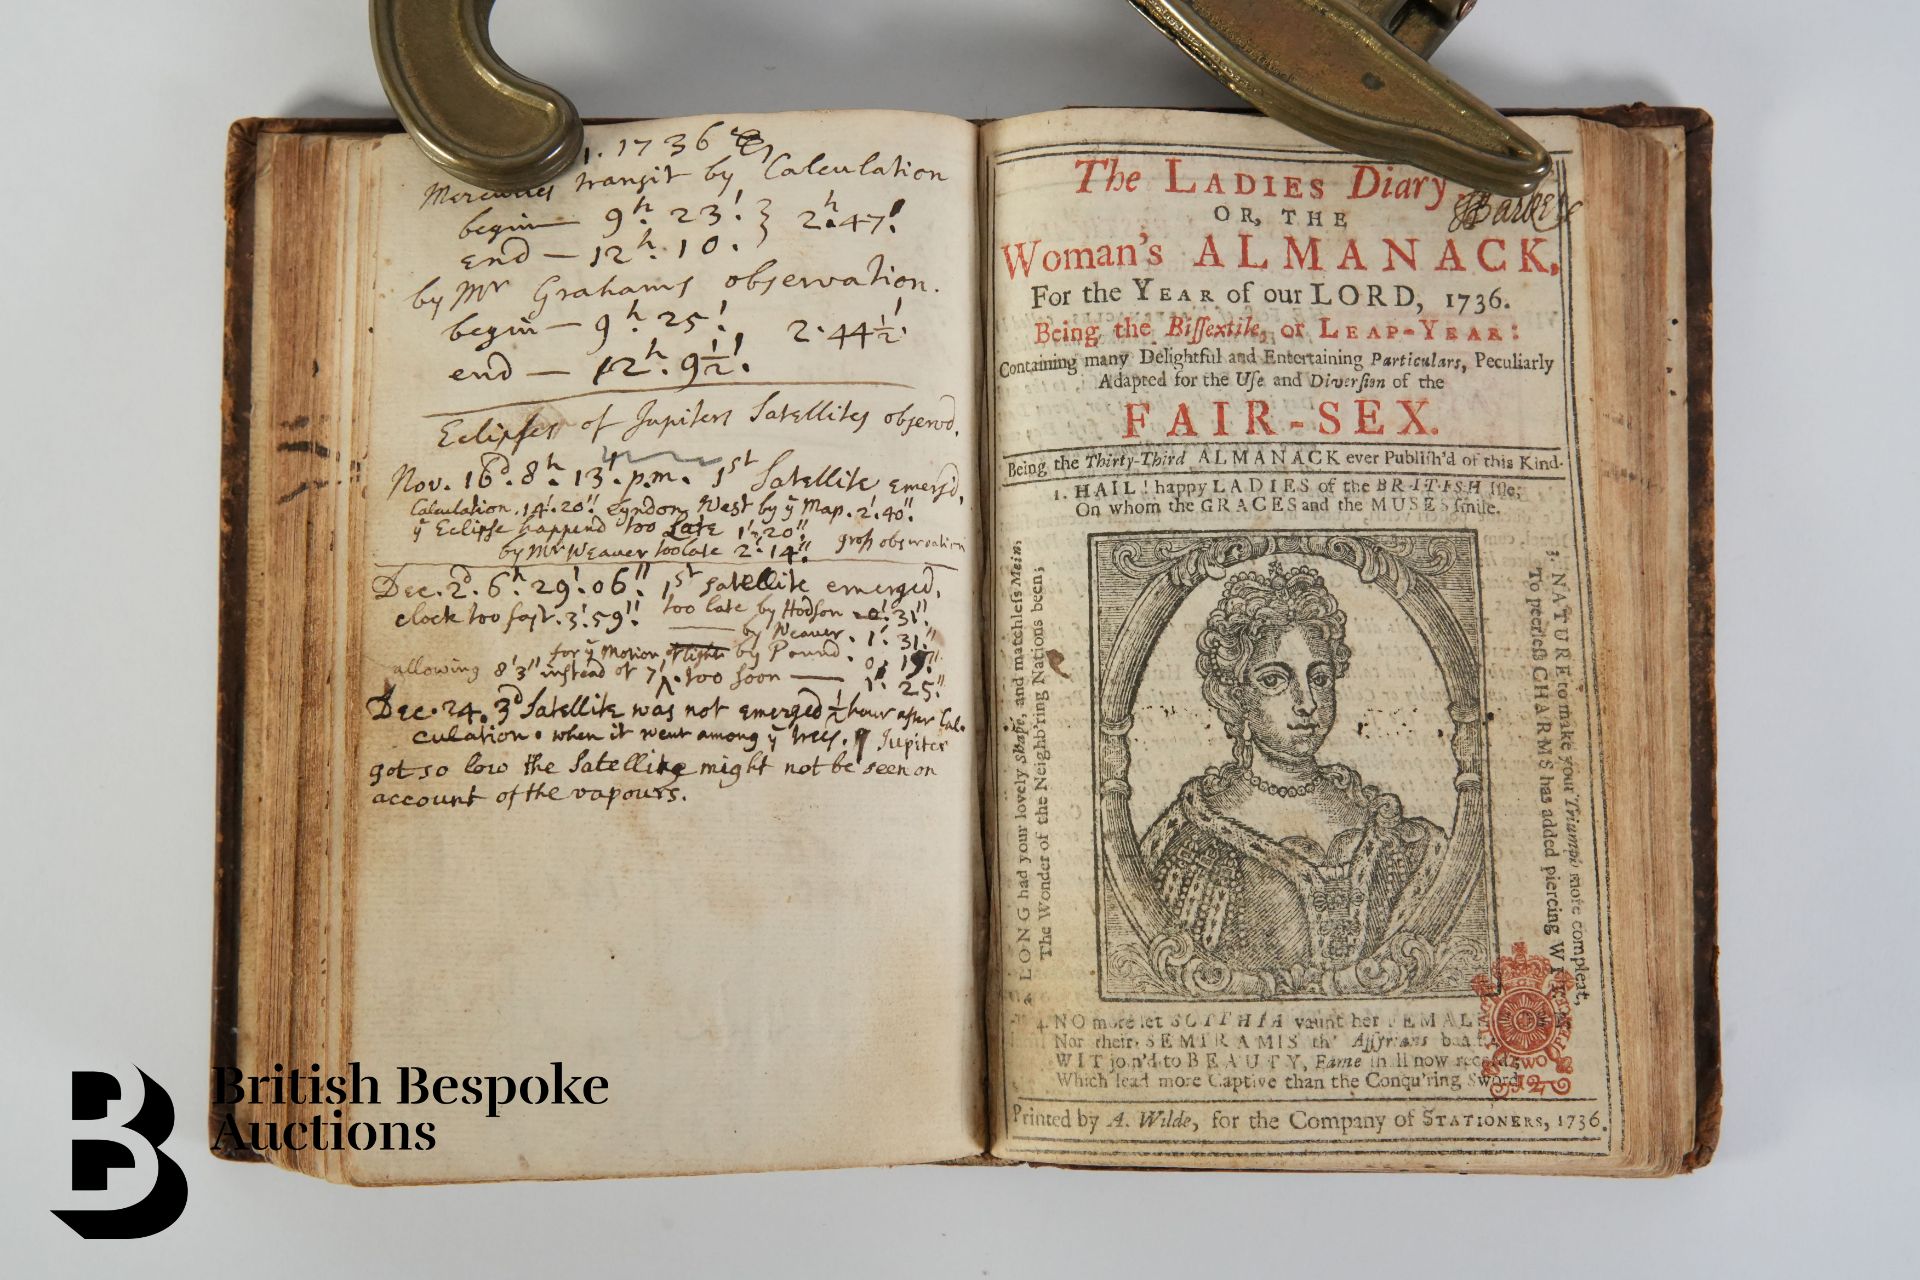 1. 1736
Mercuries transit by Calculation
begin — 9h. 23'. } 2h. 47'.
end — 12h. 10. }
by Mr Grahams observation.
begin — 9h. 25'. 2. 44½'.
end — 12h. 9½'.
Eclipses of Jupiters Satellites observd.
Nov. 16d. 8h. 13'. p.m. 1st Satellite emergd,
Calculation. 14'. 20''. Lyndon West by ye Map. 2'. 40''.
ye Eclipse happend too Late 1'. 20''.
by Mr Weaver too late 2'. 14''. gross observation
Dec. 2d. 6h. 29'. 06'' 1st satellite emerged,
clock too fast. 3'. 59''. too late by Hodson 31''.
—— by Weaver. 1'. 31''
for ye Motion by Pound. 0'.
allowing 8'3'' instead of 7'. too soon —— 1'. 25''
Dec. 24. 3d Satellite was not emerged ½ hour after Cal-
culation. when it went among ye trees. Jupiter
got so low the Satellite might not be seen on
account of the vapours.
The LADIES Diary
Barker
OR, THE
Woman's ALMANACK,
For the YEAR of our LORD, 1736.
Being the Bissextile, or LEAP-YEAR:
Containing many Delightful and Entertaining Particulars, Peculiarly
Adapted for the Use and Diversion of the
FAIR-SEX.
Being the Thirty-Third ALMANACK ever Publish'd of this Kind.
1. HAIL! happy LADIES of the BRITISH Isle;
On whom the GRACES and the MUSES smile.
2. LONG had your lovely Shape, and matchless Mein,
The Wonder of the Neighb'ring Nations been;
3. NATURE to make your Triumph more compleat,
To peerless CHARMS has added piercing WIT.
4. NO more let SCYTHIA vaunt her FEMAL
Nor their SEMIRAMIS th' Assyrians boast
WIT join'd to BEAUTY, Fame shall now record,
Which lead more Captive than the Conqu'ring Sword.
Printed by A. Wilde, for the Company of STATIONERS, 1736.
British Bespoke
Auctions
B